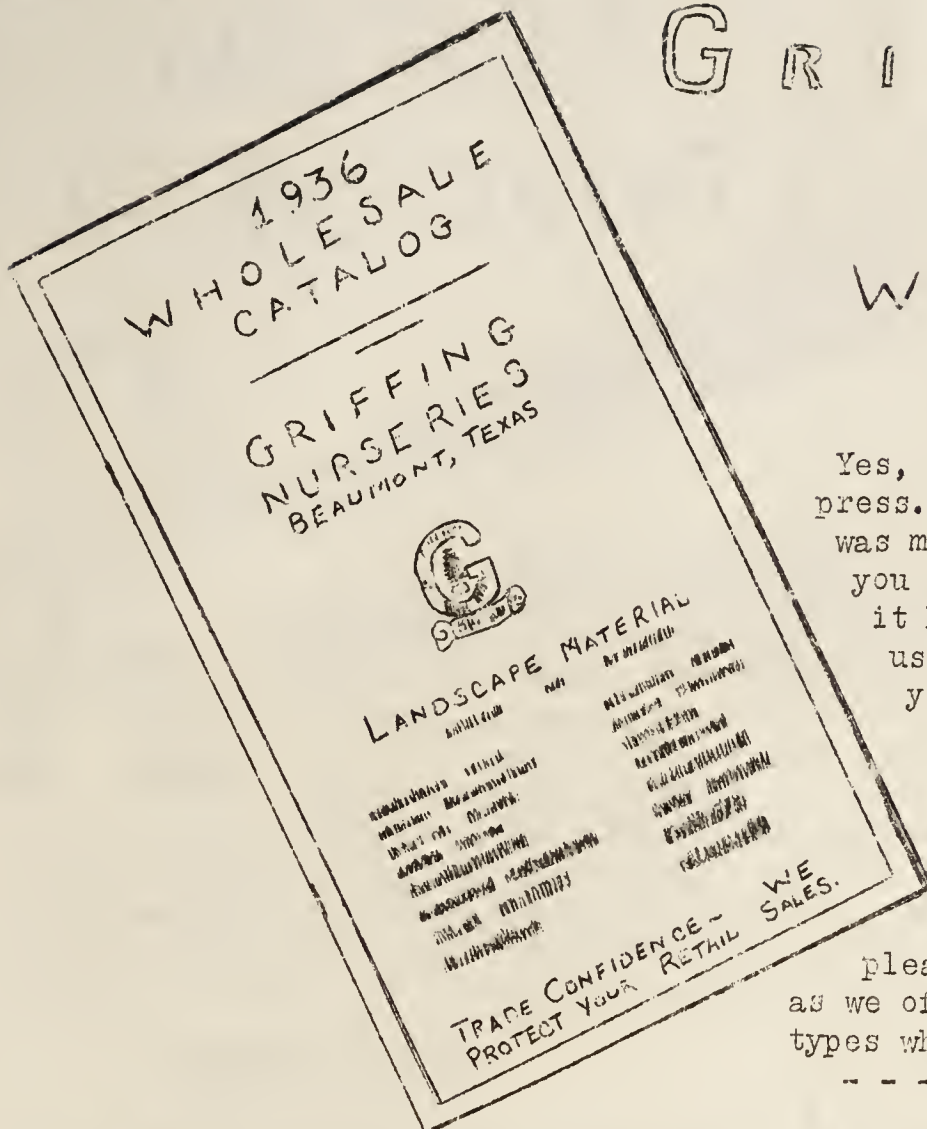 GRI
1936
WHOLESALE
CATALOG
GRIFFING
NURSERIES
BEAUMONT, TEXAS
G
LANDSCAPE MATERIAL
TRADE CONFIDENCE ~ WE
PROTECT YOUR RETAIL SALES.
W
Yes,
press.
was m
you
it
us
y
plea
as we of
types wh
- - -